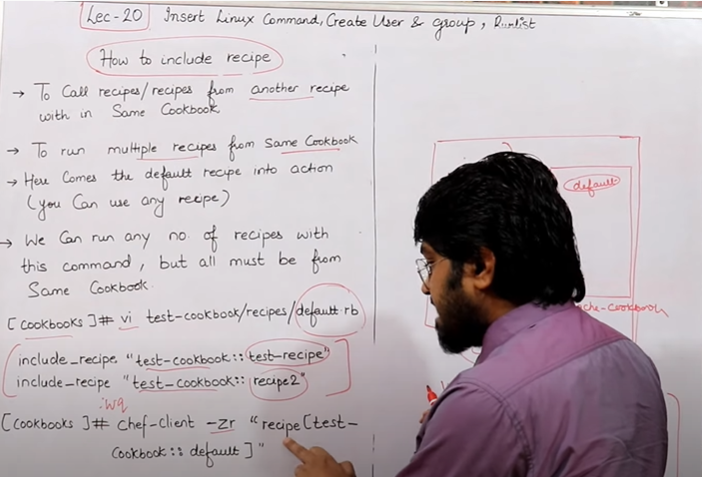 Lec-20 Insert Linux Command, Create User & group, Runlist
How to include recipe
→ To Call recipes/recipes from another recipe
with in Same Cookbook
→ To run multiple recipes from Same Cookbook
→ Here Comes the default recipe into action
(you Can use any recipe)
→ We Can run any no. of recipes with
this command, but all must be from
Same Cookbook.
[cookbooks]# vi test-cookbook/recipes/default.rb
include_recipe "test-cookbook::test-recipe"
include_recipe "test-cookbook::recipe2"
:wq
[cookbooks]# chef-client -zr "recipe[test-
Cookbook::default]"
default
che-cookbook